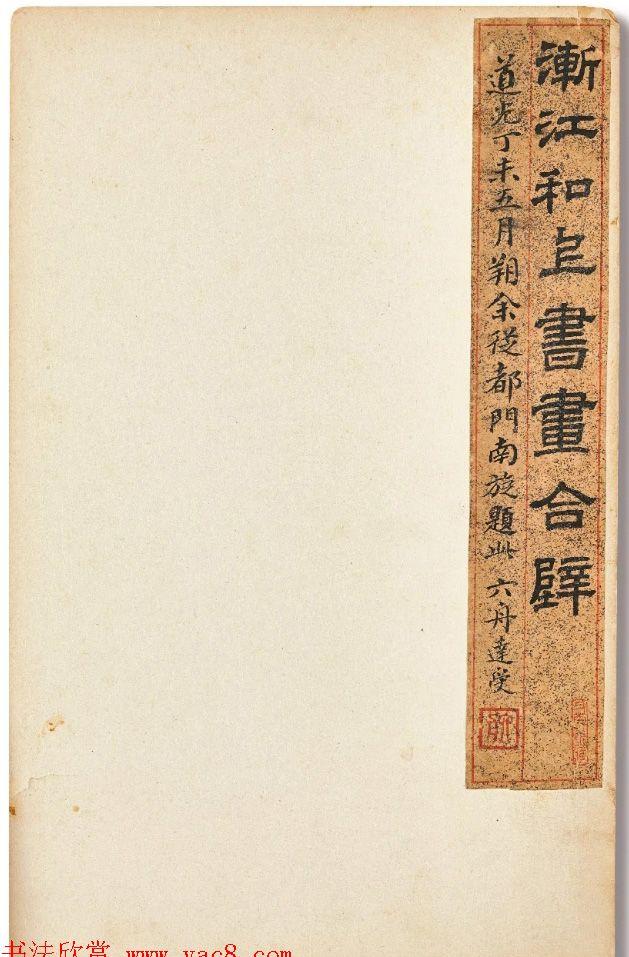 漸江和上書畫合壁
道光丁未五月朔余從都門南旋題此六舟達受
书法欣赏 www.yac8.com